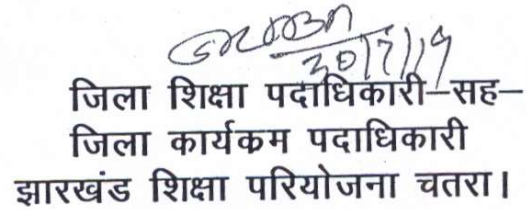 30/7/19
जिला शिक्षा पदाधिकारी–सह–
जिला कार्यकम पदाधिकारी
झारखंड शिक्षा परियोजना चतरा।